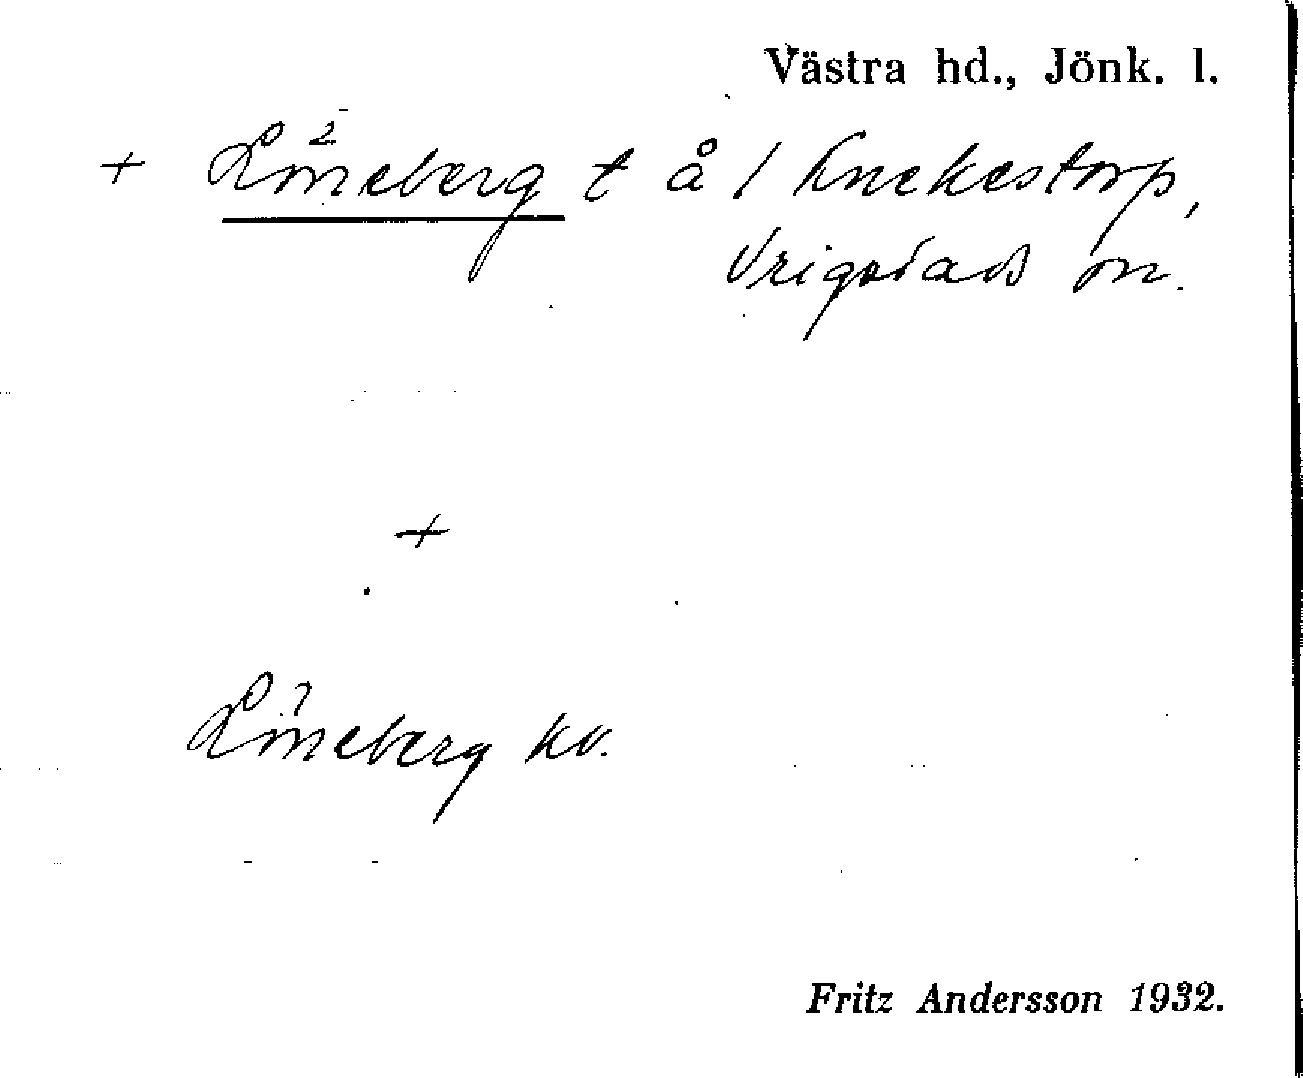 Västra hd., Jönk. l.
+ Löneberg t å / Knekestorp,
Vrigstads sn.
+
Löneberg kv.
Fritz Andersson 1932.